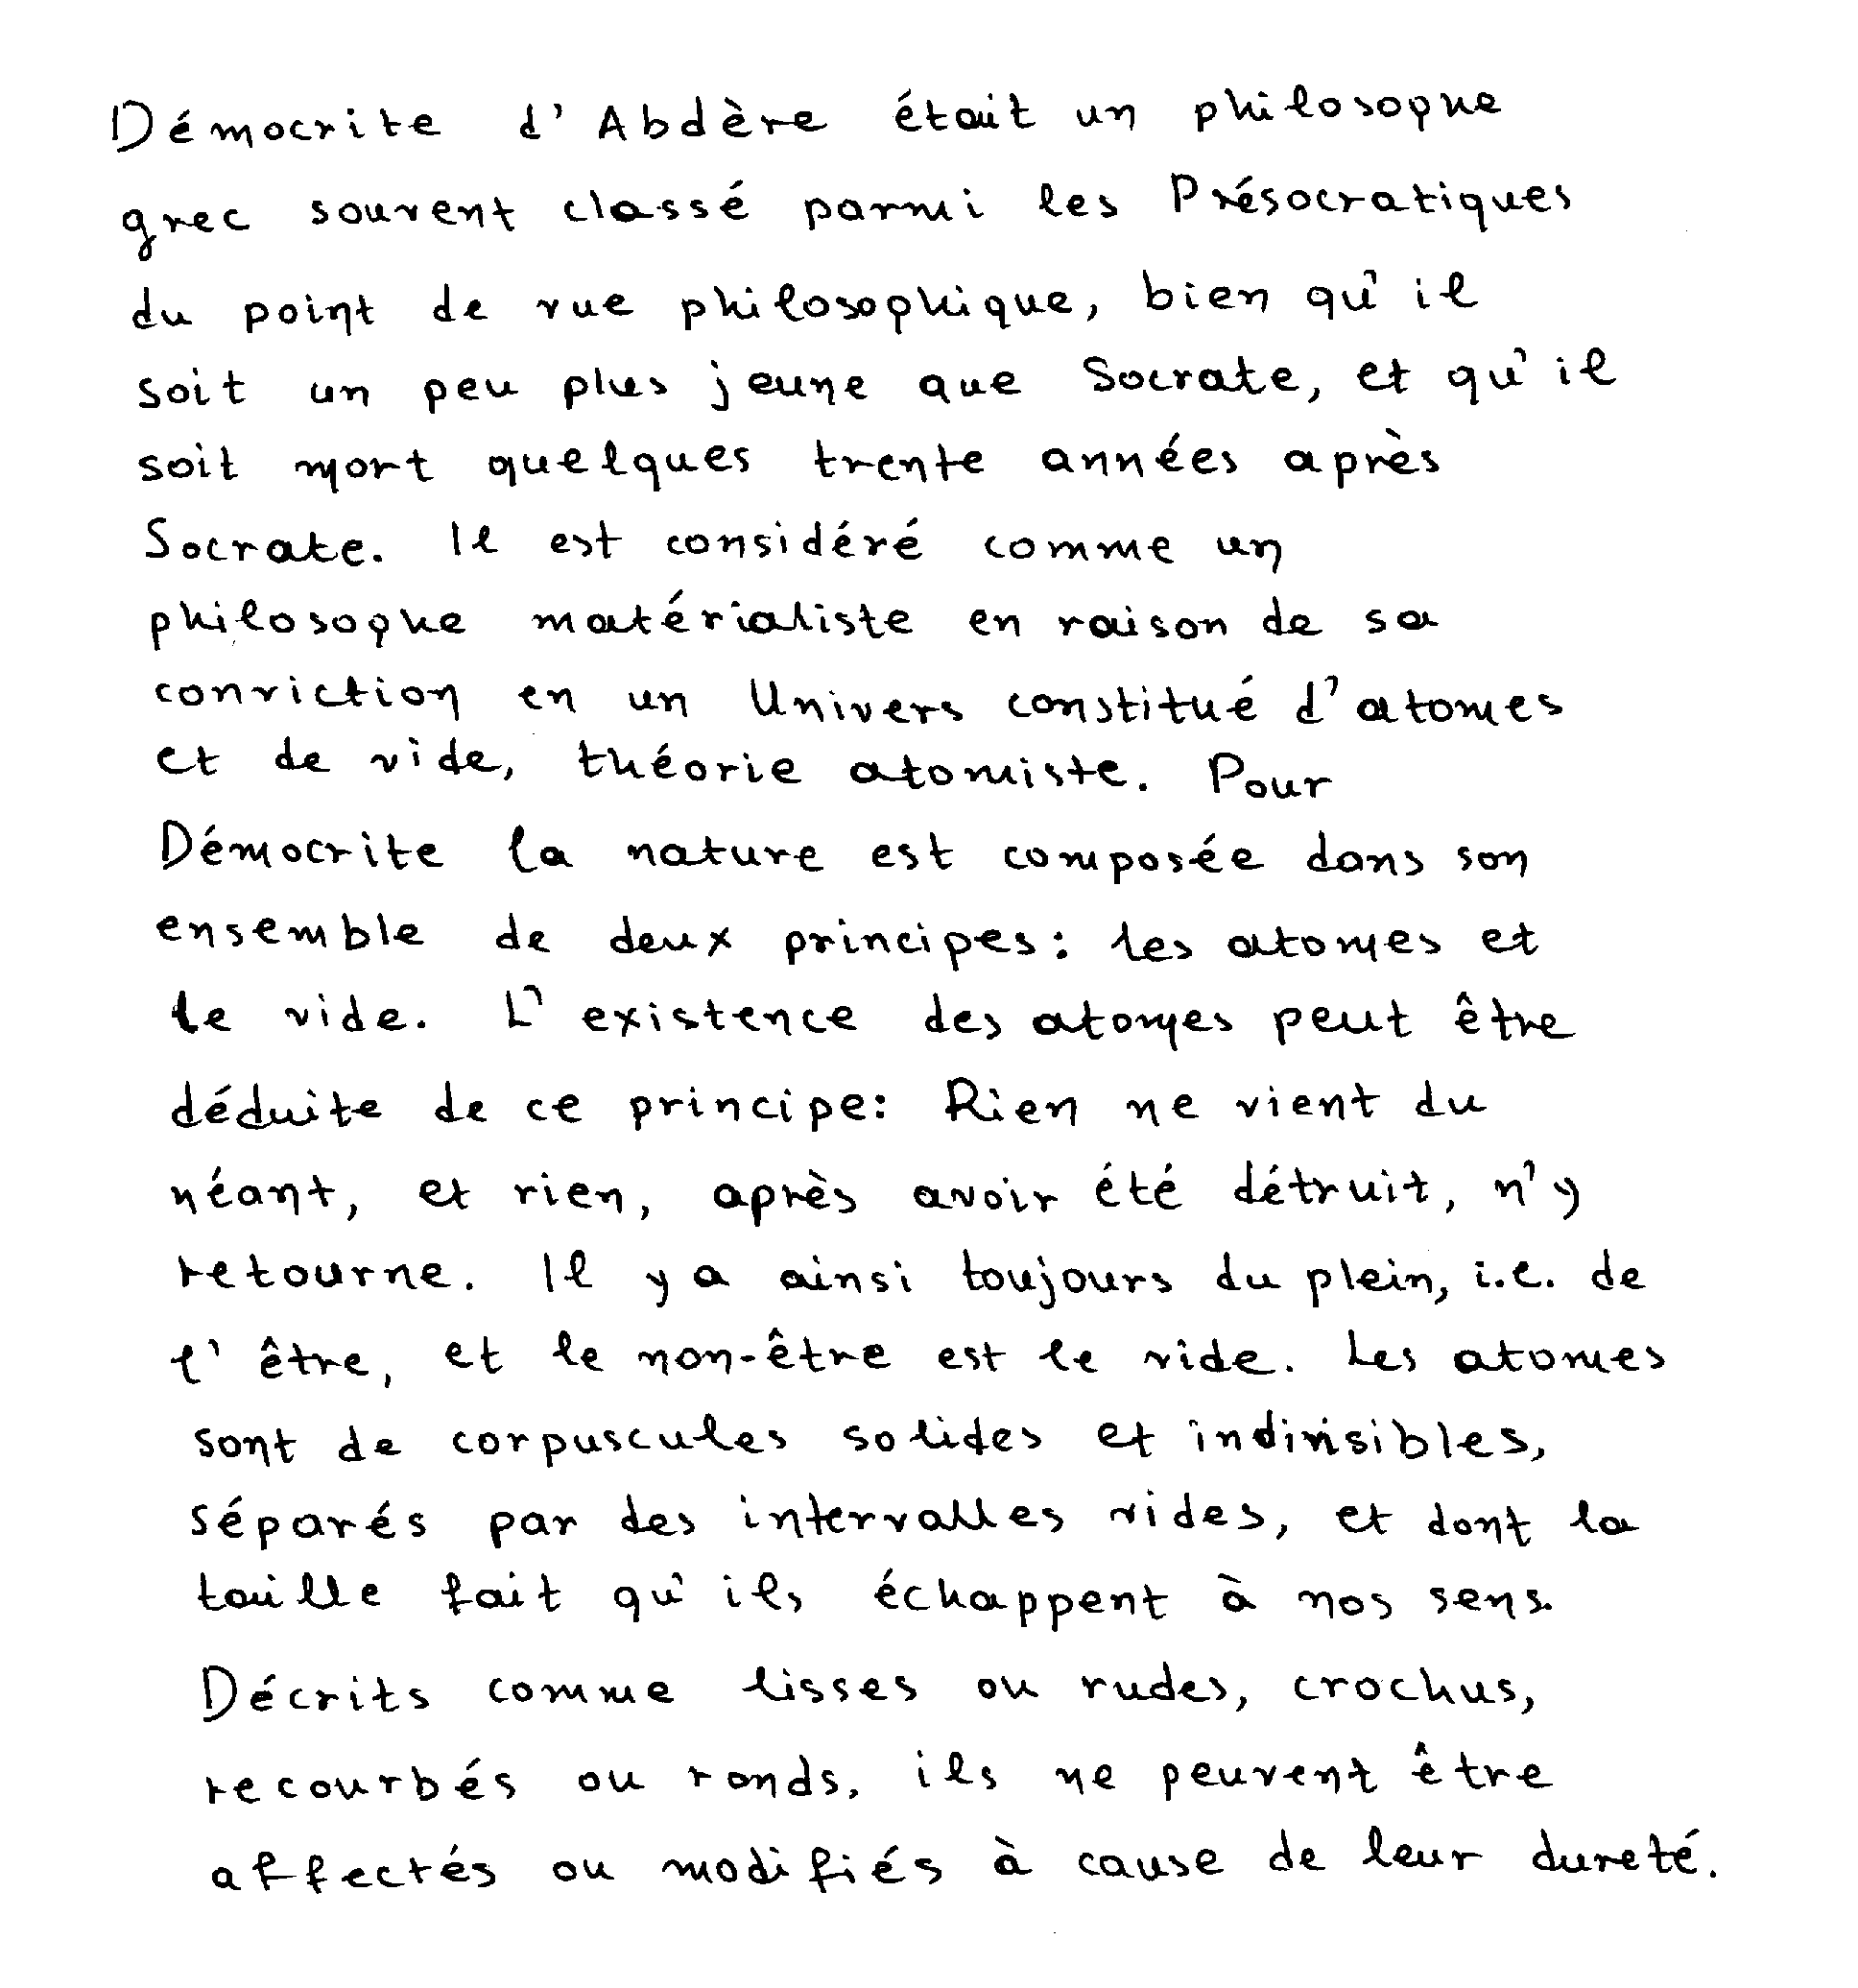 Démocrite d'Abdère était un philosophe
grec souvent classé parmi les Présocratiques
du point de vue philosophique, bien qu'il
soit un peu plus jeune que Socrate, et qu'il
soit mort quelques trente années après
Socrate. Il est considéré comme un
philosophe matérialiste en raison de sa
conviction en un Univers constitué d'atomes
et de vide, théorie atomiste. Pour
Démocrite la nature est composée dans son
ensemble de deux principes: les atomes et
le vide. L'existence des atomes peut être
déduite de ce principe: Rien ne vient du
néant, et rien, après avoir été détruit, n'y
retourne. Il y a ainsi toujours du plein, i.e. de
l'être, et le non-être est le vide. Les atomes
sont de corpuscules solides et indivisibles,
séparés par des intervalles vides, et dont la
taille fait qu'ils échappent à nos sens.
Décrits comme lisses ou rudes, crochus,
recourbés ou ronds, ils ne peuvent être
affectés ou modifiés à cause de leur dureté.